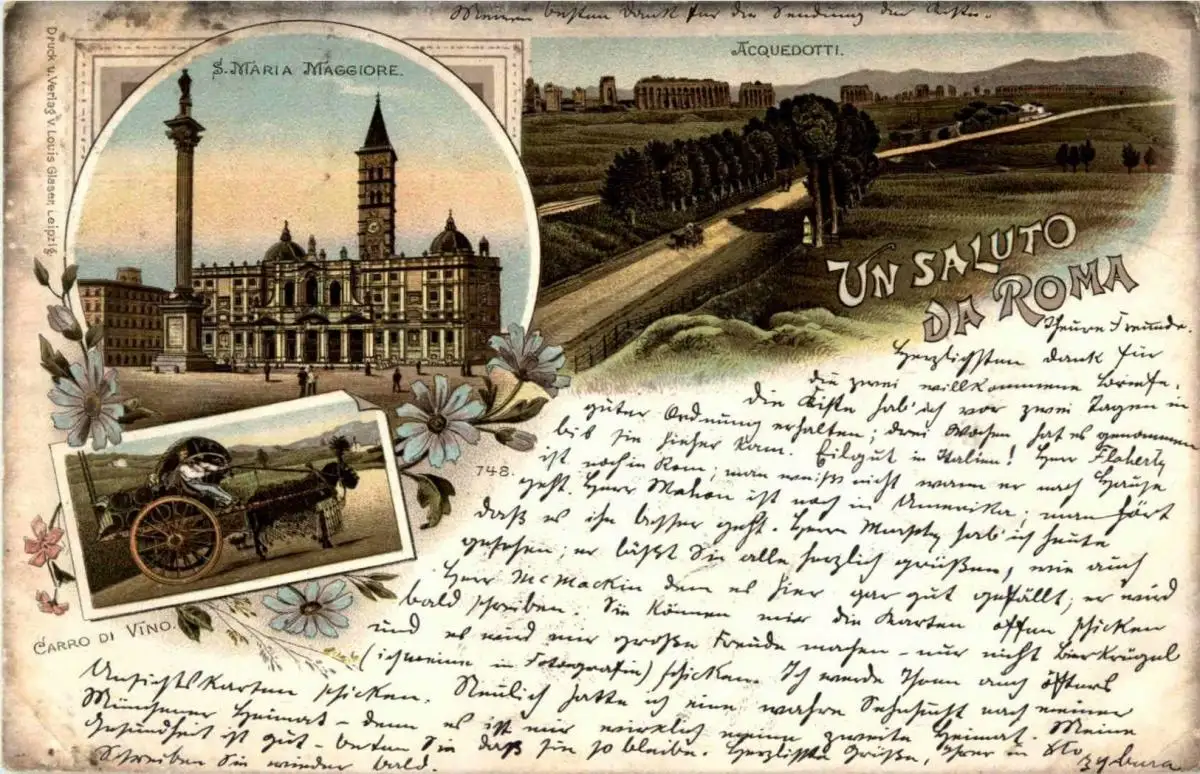 Meinen besten Dank für die Sendung der Kiste.
S. MARIA MAGGIORE.
ACQUEDOTTI.
Druck u. Verlag v. Louis Glaser, Leipzig.
UN SALUTO
DA ROMA
748.
CARRO DI VINO.
Theure Freunde,
Herzlichsten Dank für
die zwei willkommene Briefe.
Die Kiste hab' ich vor zwei Tagen in
guter Ordnung erhalten; drei Wochen hat es genommen
bis sie hieher kam. Eilgut in Italien! Herr Flaherty
ist noch in Rom; man weiß nicht wann er nach Hause
geht. Herr Mahon ist noch in Amerika; man hört
daß es ihm besser geht. Herrn Murphy hab' ich heute
gesehen; er läßt Sie alle herzlich grüßen, wie auch
Herr McMackin dem es hier gar gut gefällt; er wird
bald schreiben. Sie können mir die Karten offen schicken
und es wird mir große Freude machen – nur nicht Bierkrügel
(ich meine in Fotografin) schicken. Ich werde Ihnen auch öfters
Ansichtskarten schicken. Neulich hatte ich eine wahre Sehnsucht nach meiner
Münchener Heimat – denn es ist mir wirklich meine zweite Heimat. Meine
Gesundheit ist gut – beten Sie daß sie so bleibe. Herzlichste Grüße, Ihrer in
Schreiben Sie wieder bald.